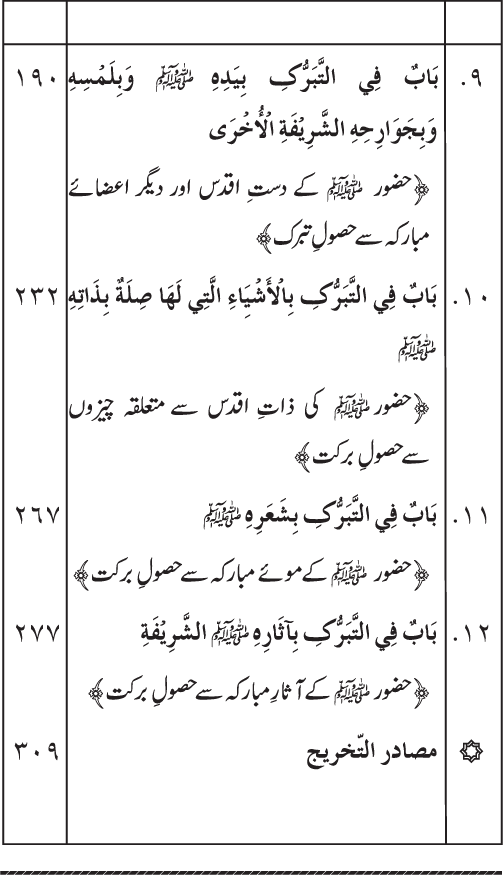 ٩. بَابٌ فِي التَّبَرُّكِ بِيَدِهِ ﷺ وَبِلَمْسِهِ ١٩٠
وَبِجَوَارِحِهِ الشَّرِيْفَةِ الْأُخْرَى
﴿حضور ﷺ کے دستِ اقدس اور دیگر اعضائے
مبارکہ سے حصولِ تبرک﴾
١٠. بَابٌ فِي التَّبَرُّكِ بِالْأَشْيَاءِ الَّتِي لَهَا صِلَةٌ بِذَاتِهِ ٢٣٢
ﷺ
﴿حضور ﷺ کی ذاتِ اقدس سے متعلقہ چیزوں
سے حصولِ برکت﴾
١١. بَابٌ فِي التَّبَرُّكِ بِشَعَرِهِ ﷺ ٢٦٧
﴿حضور ﷺ کے موئے مبارکہ سے حصولِ برکت﴾
١٢. بَابٌ فِي التَّبَرُّكِ بِآثَارِهِ ﷺ الشَّرِيْفَةِ ٢٧٧
﴿حضور ﷺ کے آثارِ مبارکہ سے حصولِ برکت﴾
۞ مصادر التّخريج ٣٠٩